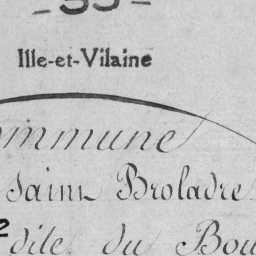 - 35 -
Ille-et-Vilaine
ommune
Saint Broladre
e dite du Bou